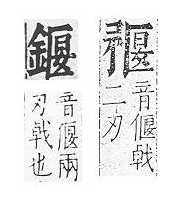 音偃戟
二刃
音偃兩
刃戟也